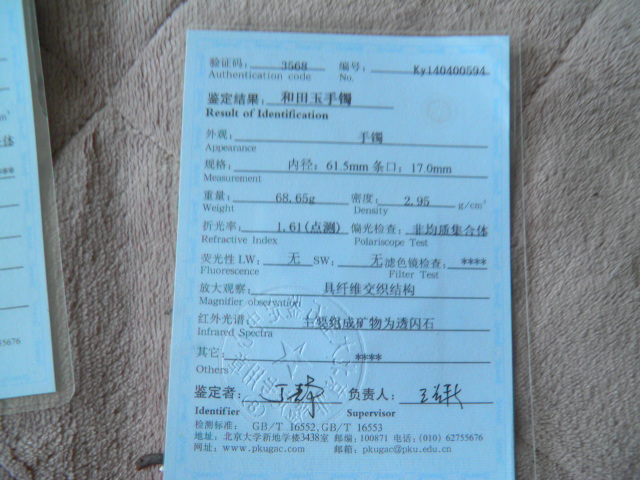 验证码： 3568 编号： Ky140400594
Authentication code No.
鉴定结果： 和田玉手镯
Result of Identification
外观： 手镯
Appearance
规格： 内径：61.5mm 条口：17.0mm
Measurement
重量： 68.65g 密度： 2.95 g/cm³
Weight Density
折光率： 1.61(点测) 偏光检查： 非均质集合体
Refractive Index Polariscope Test
荧光性 LW： 无 SW： 无 滤色镜检查： ****
Fluorescence Filter Test
放大观察： 具纤维交织结构
Magnifier obervation
红外光谱： 主要组成矿物为透闪石
Infrared Spectra
其它： ****
Others
鉴定者： 负责人：
Identifier Supervisor
检测标准： GB/T 16552,GB/T 16553
地址：北京大学新地学楼3438室 邮编：100871 电话：(010) 62755676
网址：www.pkugac.com 邮箱：pkugac@pku.edu.cn